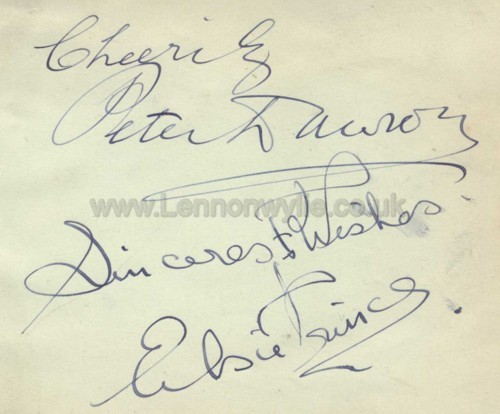 Cheerily
Peter Dawson
www.Lennonwylie.co.uk
Sincerest Wishes.
Elsie